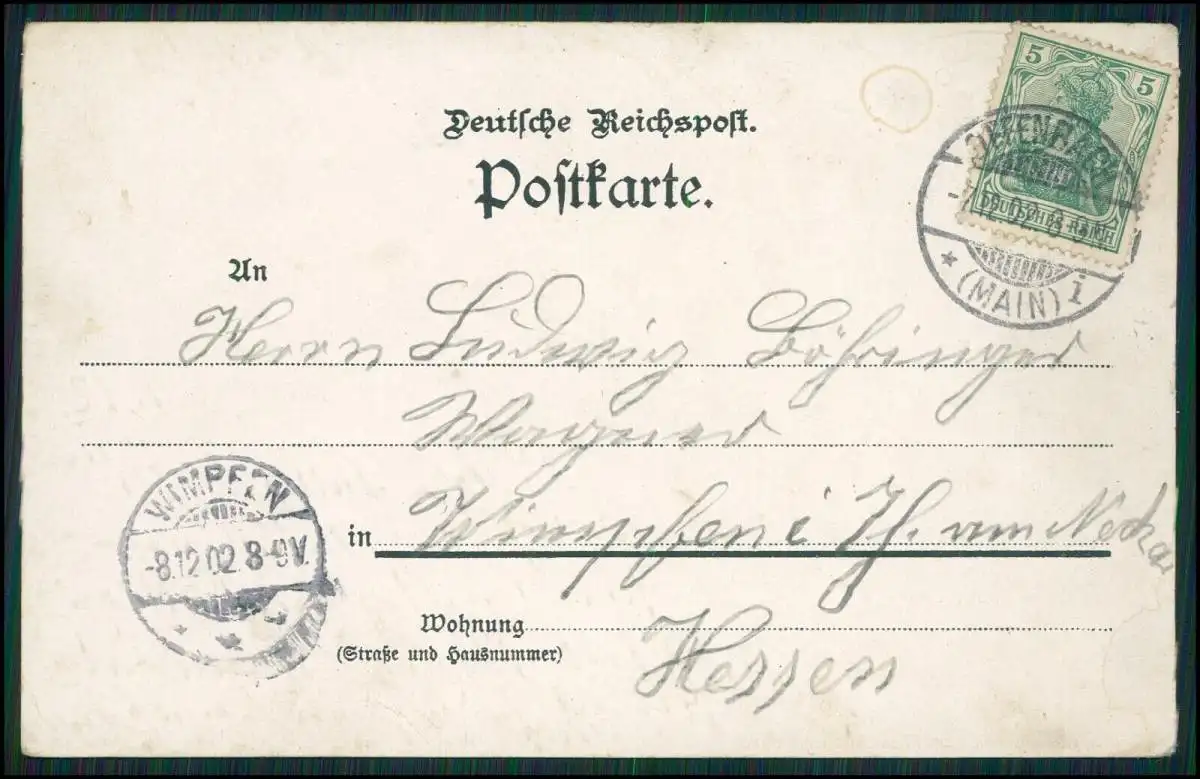 5 5
DEUTSCHES REICH
OFFENBACH
(MAIN) 1
Deutsche Reichspost.
Postkarte.
An
Herrn Ludwig Böhringer
Wagner
in Wimpfen i Th. am Neckar
Wohnung
(Straße und Hausnummer)
Hessen
WIMPFEN
-8.12.02. 8-9V.